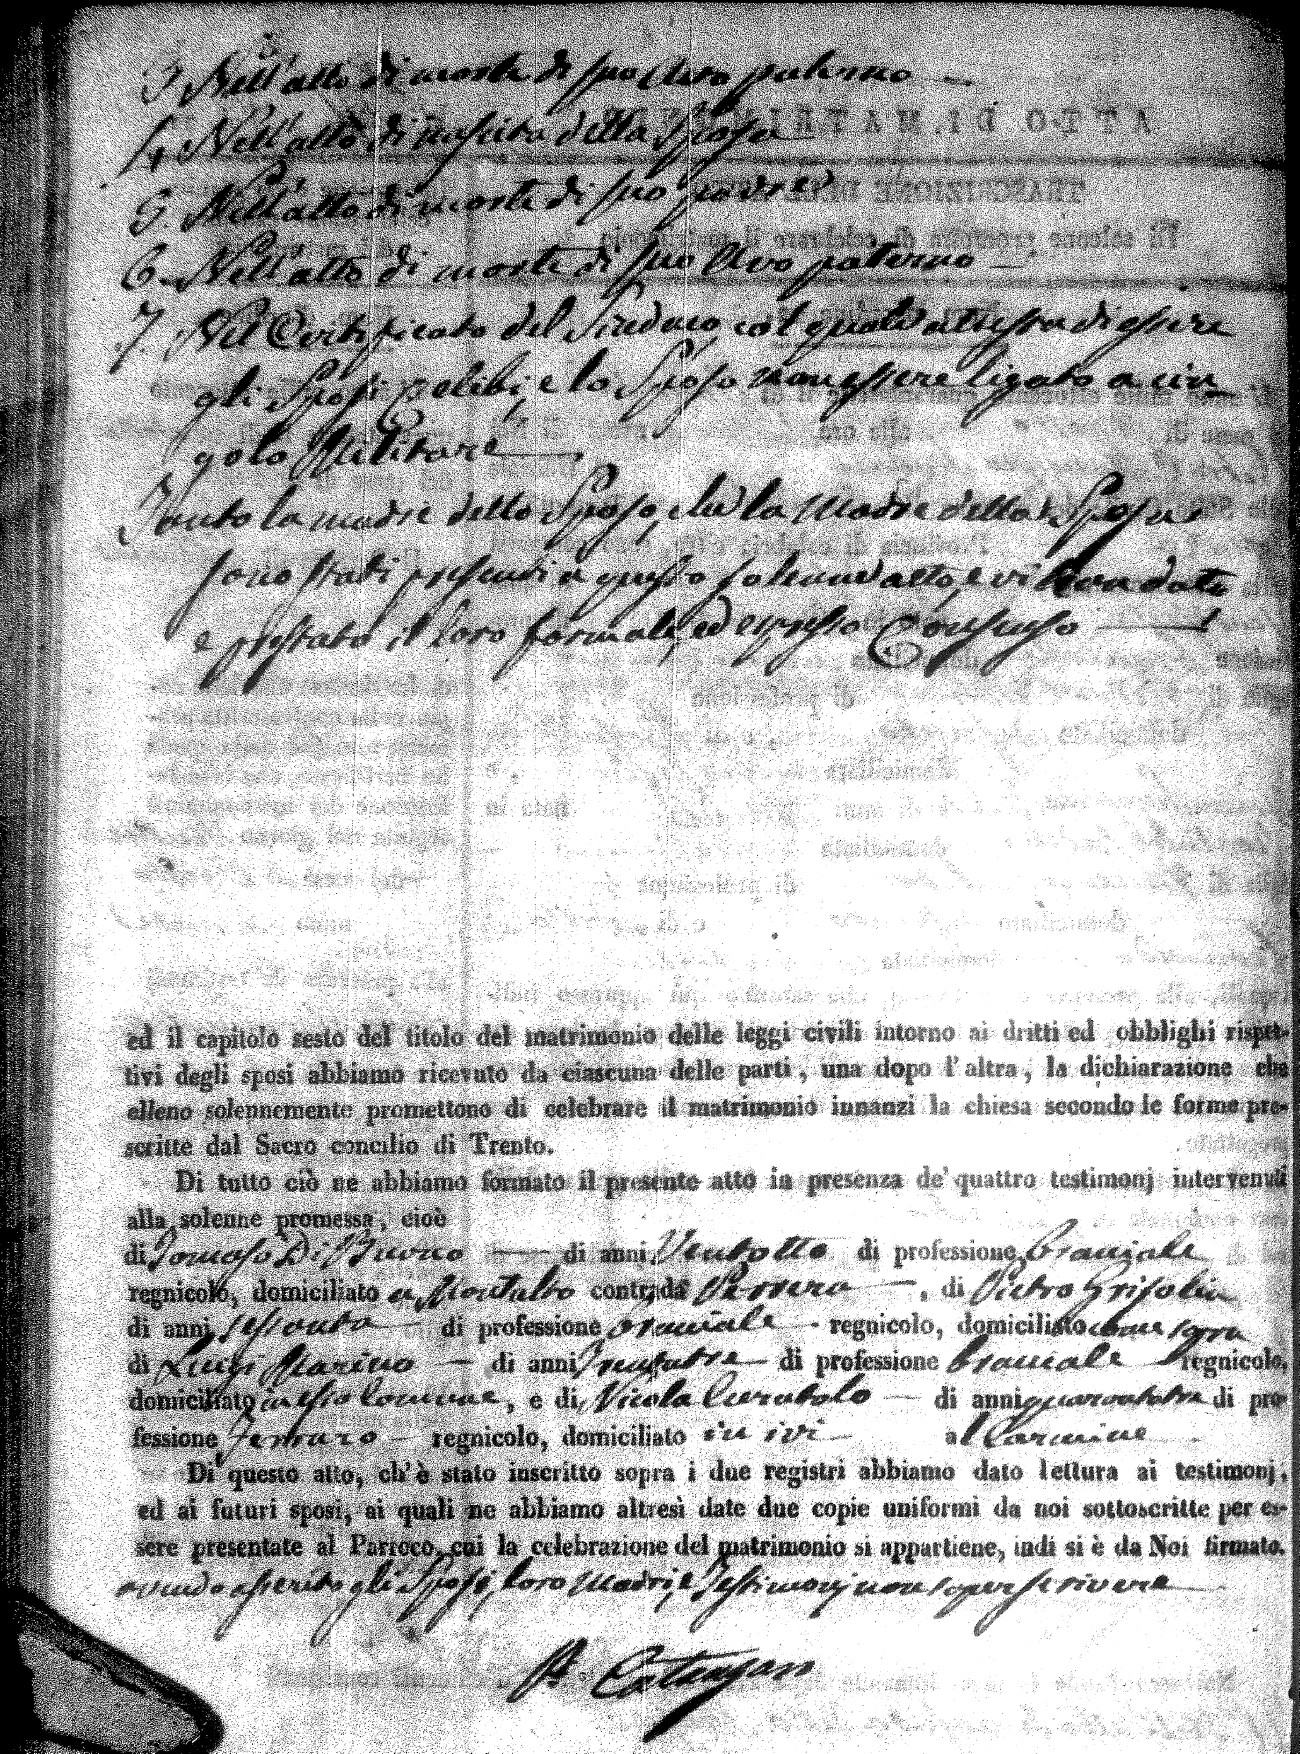 3 Nell'atto di morte di suo Avo paterno
4. Nell'atto di nascita della Sposa
5. Nell'atto di morte di suo padre
6. Nell'atto di morte di suo Avo paterno
7. Nel Certificato del Sindaco col quale attesta di essere
gli Sposi celibi, e lo Sposo non essere ligato a cin
golo Militare
Tanto la madre dello Sposo, che la Madre della Sposa
sono stati presenti a questo solenne atto, e vi han dato
e prestato il loro formale, ed espresso Consenso
ed il capitolo sesto del titolo del matrimonio delle leggi civili intorno ai dritti ed obblighi rispet-
tivi degli sposi abbiamo ricevuto da ciascuna delle parti, una dopo l'altra, la dichiarazione che
elleno solennemente promettono di celebrare il matrimonio innanzi la chiesa secondo le forme pre-
scritte dal Sacro concilio di Trento.
Di tutto ciò ne abbiamo formato il presente atto in presenza de' quattro testimonj intervenuti
alla solenne promessa, cioè
di Tomaso Di Buono di anni Ventotto di professione Braciale
regnicolo, domiciliato a Montalto contrada , di Pietro Grisolia
di anni sessanta di professione braciale regnicolo, domiciliato come sopra
di Luigi Marino di anni trentatre di professione braciale regnicolo,
domiciliato in essa Comune, e di Nicola Curatolo di anni quarantatre di pro-
fessione ferraro regnicolo, domiciliato in ivi al Carmine
Di questo atto, ch'è stato inscritto sopra i due registri abbiamo dato lettura ai testimonj,
ed ai futuri sposi, ai quali ne abbiamo altresì date due copie uniformi da noi sottoscritte per es-
sere presentate al Parroco, cui la celebrazione del matrimonio si appartiene, indi si è da Noi firmato.
avendo asserito gli Sposi, loro Madri, e Testimonj non saper scrivere